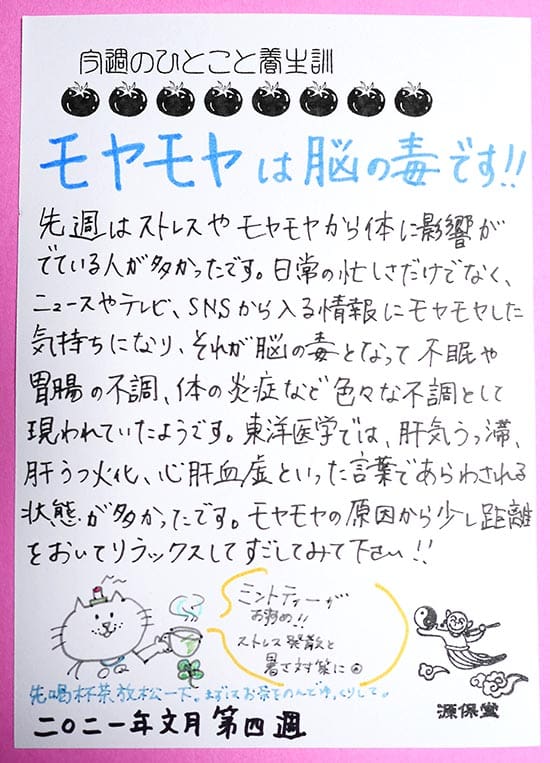 今週のひとこと養生訓
モヤモヤは脳の毒です!!
先週はストレスやモヤモヤから体に影響が
でている人が多かったです。日常の忙しさだけでなく、
ニュースやテレビ、SNSから入る情報にモヤモヤした
気持ちになり、それが脳の毒となって不眠や
胃腸の不調、体の炎症など色々な不調として
現われていたようです。東洋医学では、肝気うっ滞、
肝うつ火化、心肝血虚といった言葉であらわされる
状態が多かったです。モヤモヤの原因から少し距離
をおいてリラックスしてすごしてみて下さい!!
ミントティーが
お勧め!!
ストレス発散と
暑さ対策に
先喝杯茶放松一下。まずはお茶をのんでゆっくりして。
源保堂
二〇二一年文月 第四週